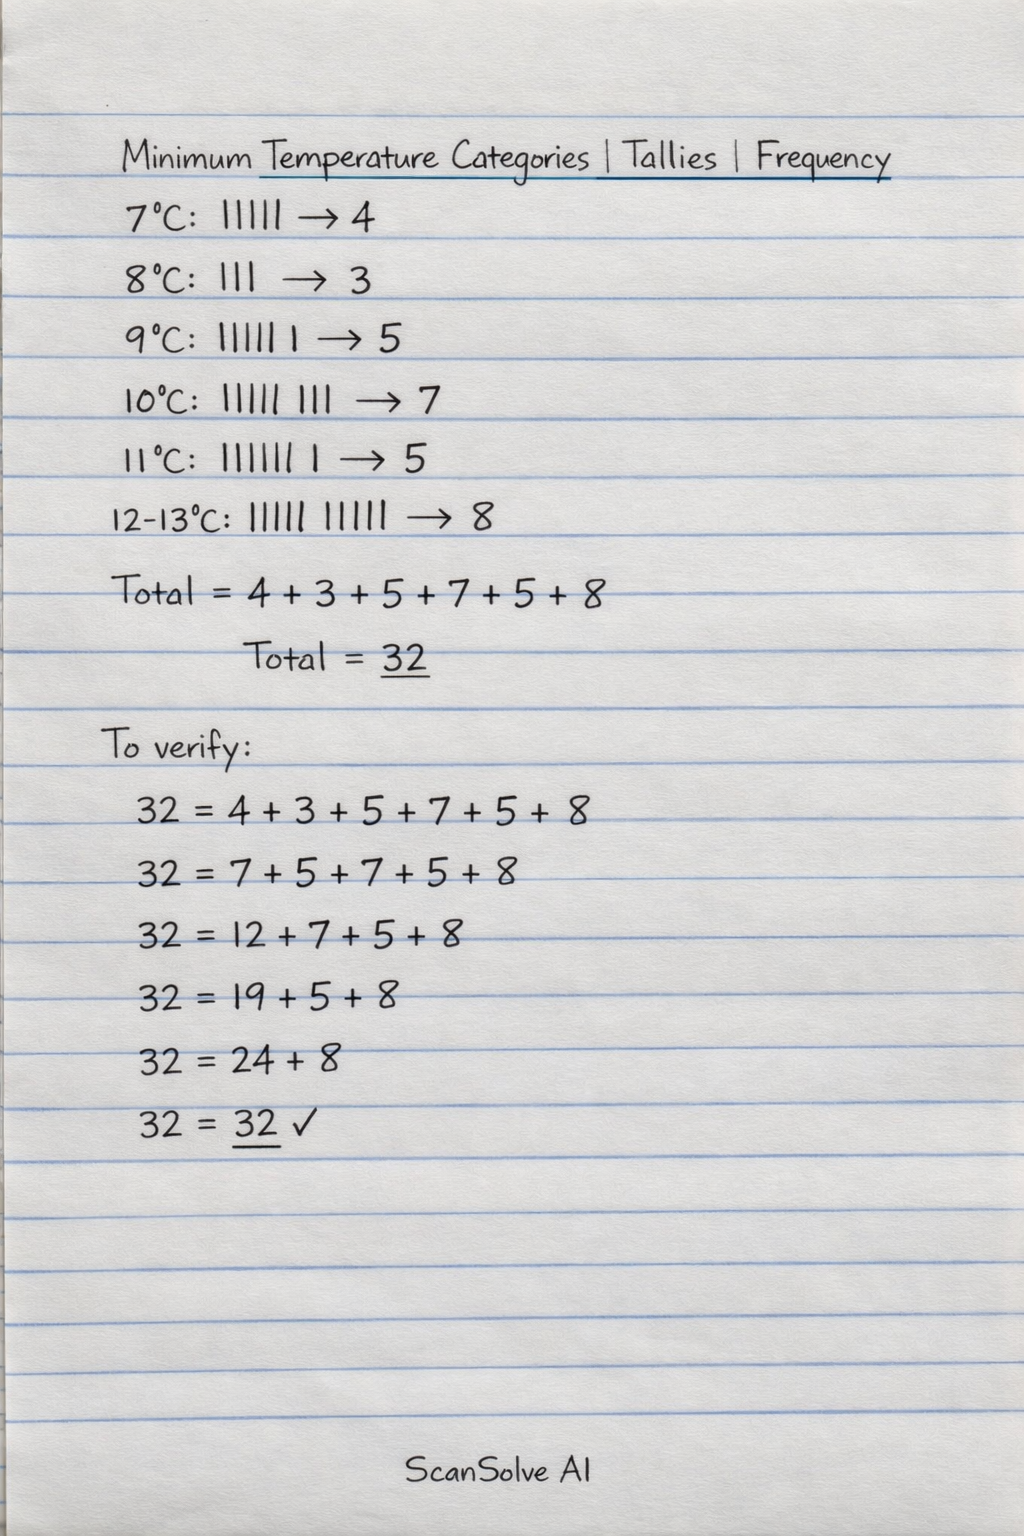 Minimum Temperature Categories | Tallies | Frequency
7°C: ||||| → 4
8°C: ||| → 3
9°C: ||||| | → 5
10°C: ||||| ||| → 7
11°C: |||||| | → 5
12-13°C: ||||| ||||| → 8
Total = 4 + 3 + 5 + 7 + 5 + 8
Total = 32
To verify:
32 = 4 + 3 + 5 + 7 + 5 + 8
32 = 7 + 5 + 7 + 5 + 8
32 = 12 + 7 + 5 + 8
32 = 19 + 5 + 8
32 = 24 + 8
32 = 32 ✓
ScanSolve AI